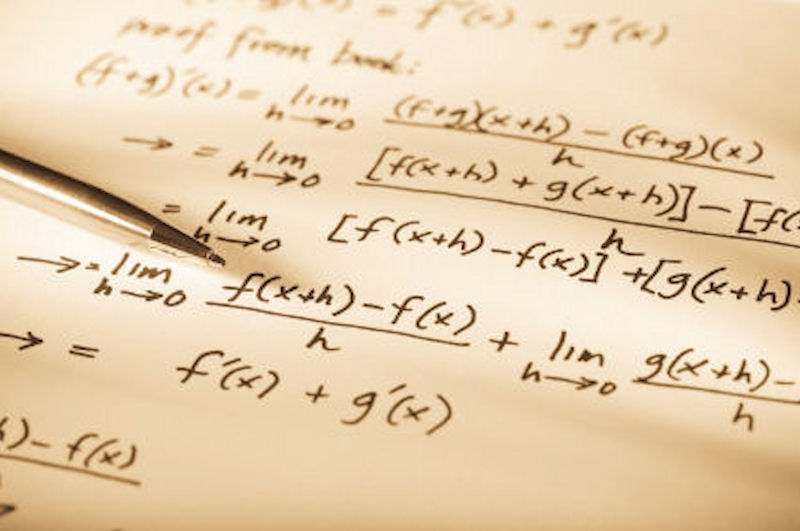 = f'(x) + g'(x)
proof from book:
(f+g)'(x) = lim h→0 (f+g)(x+h) − (f+g)(x) / h
→ = lim h→0 [f(x+h) + g(x+h)] − [f(
= lim h→0 [f(x+h) − f(x)] + [g(x+h) h
→ = lim h→0 f(x+h) − f(x) / h + lim h→0 g(x+h) − / h
→ = f'(x) + g'(x)
) − f(x)